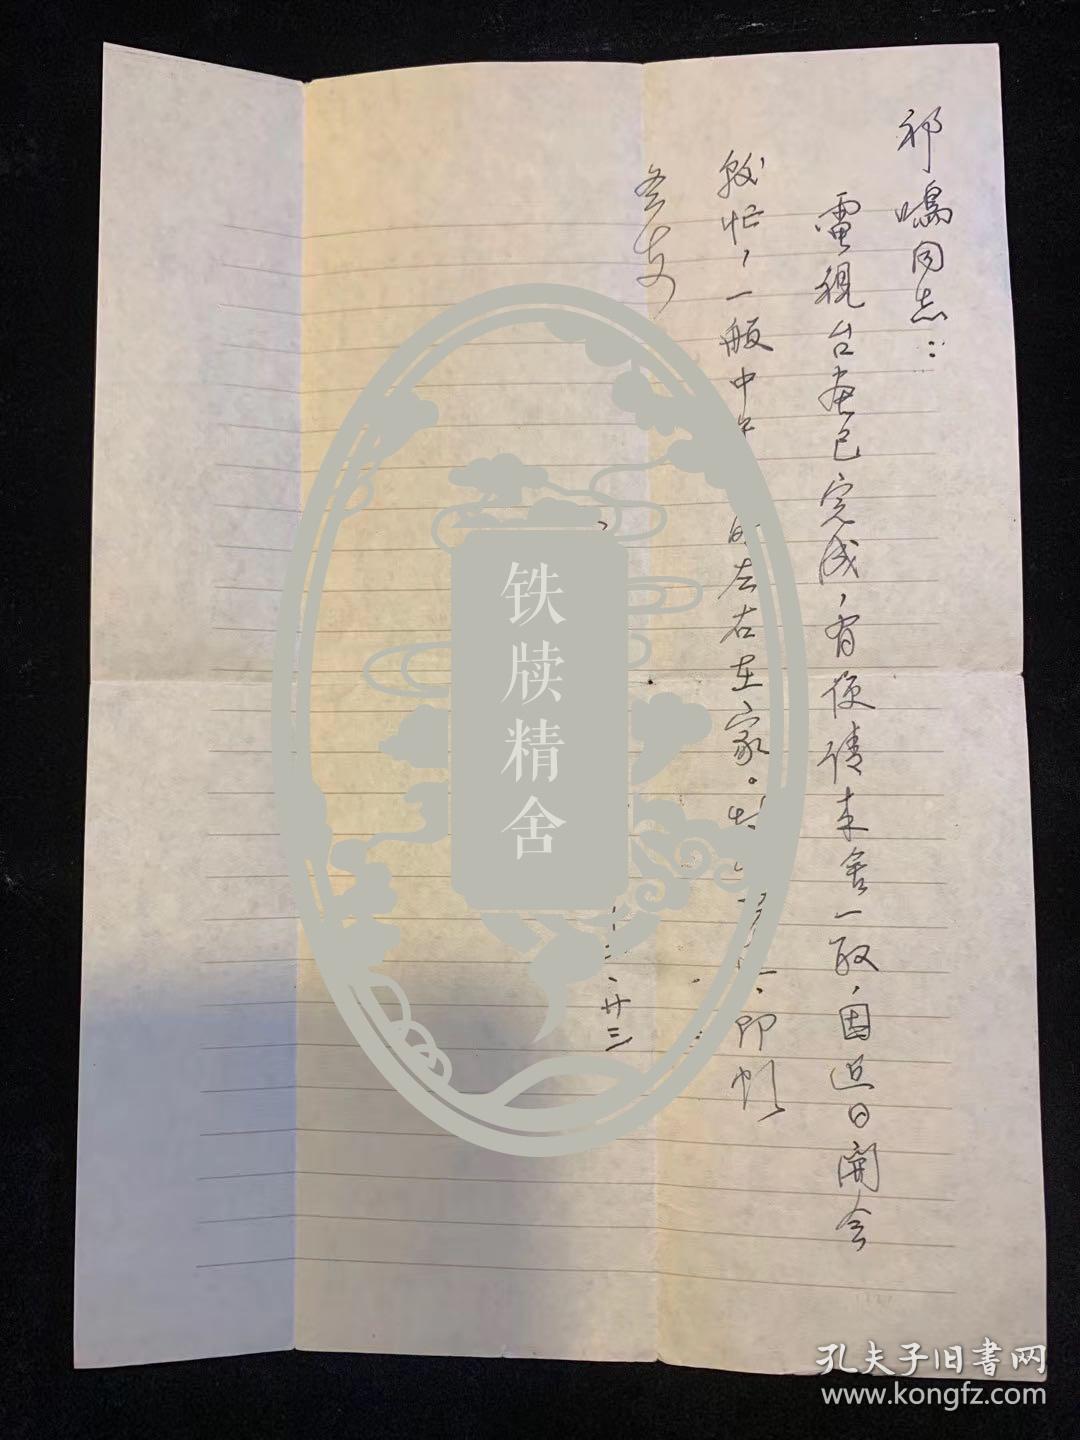 祁鳴同志：
電視台畫已完成，有便請来舍一取，因近日開会
較忙，一般中午 时左右在家。 即頌
冬安
十二、廿三
铁牍精舍
孔夫子旧書网
www.kongfz.com